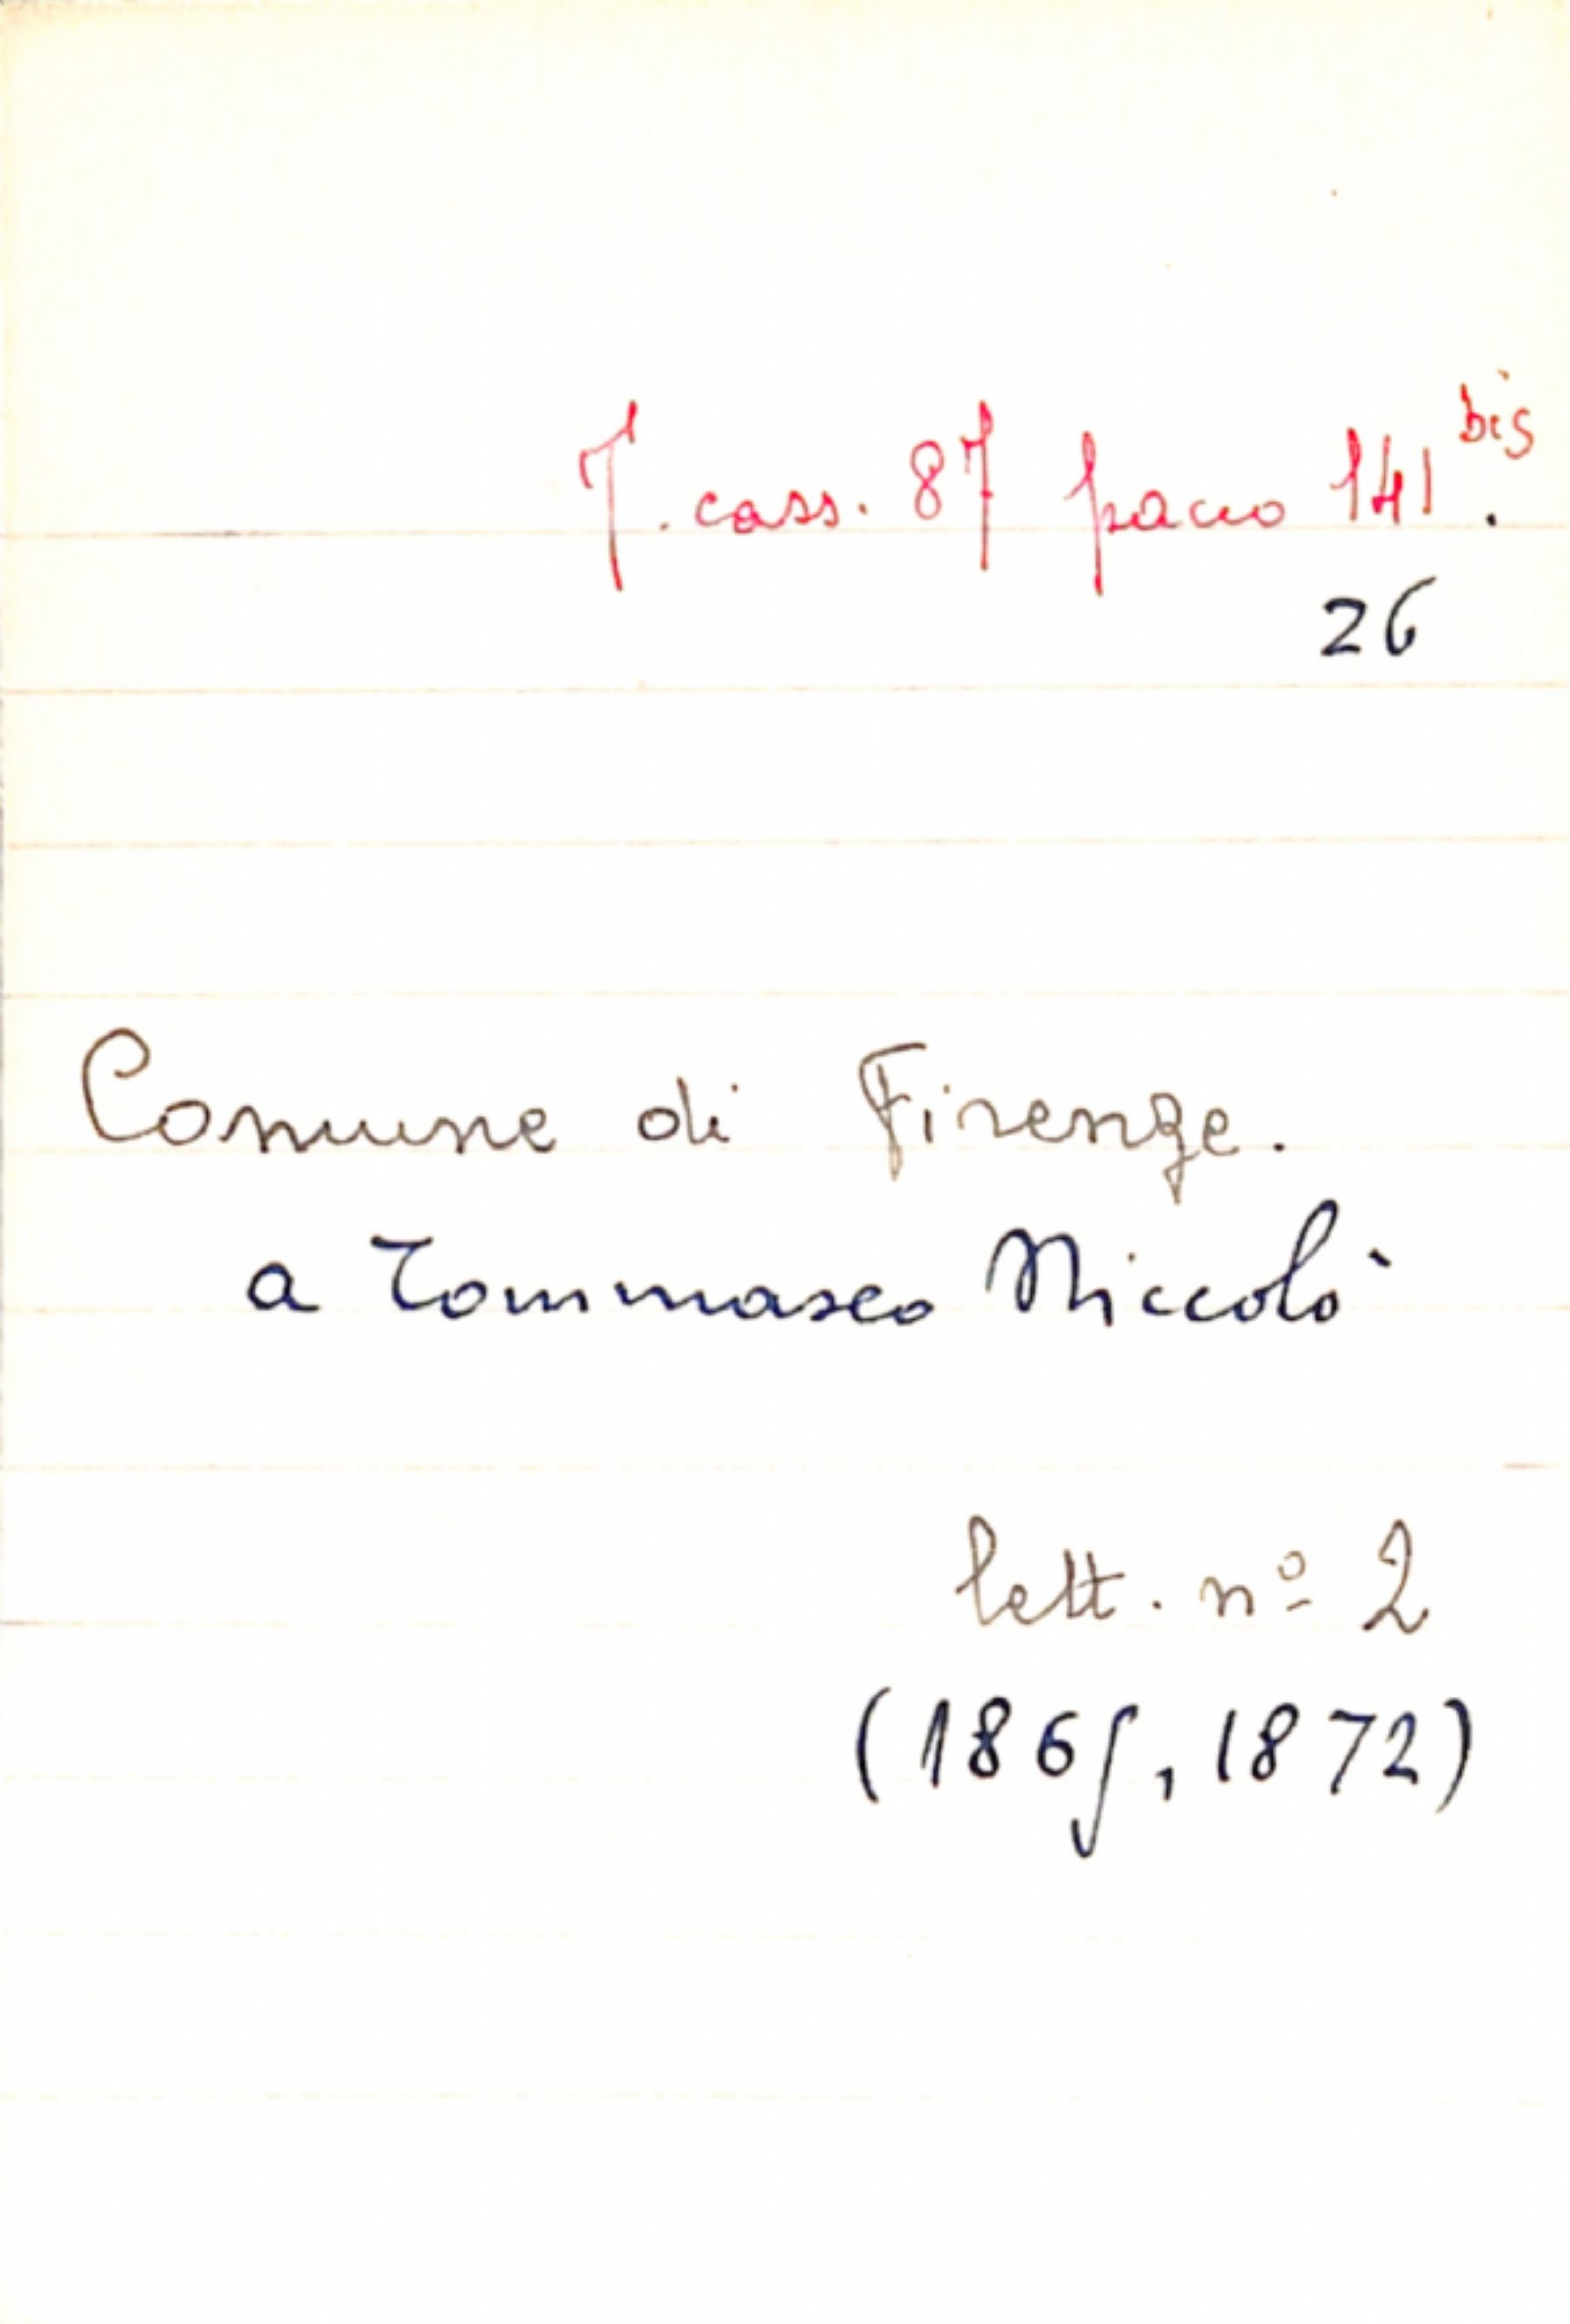 T. cass. 87 pacco 141 bis.
26
Comune di Firenze.
a Tommaseo Niccolò
lett. nº 2
(1865, 1872)